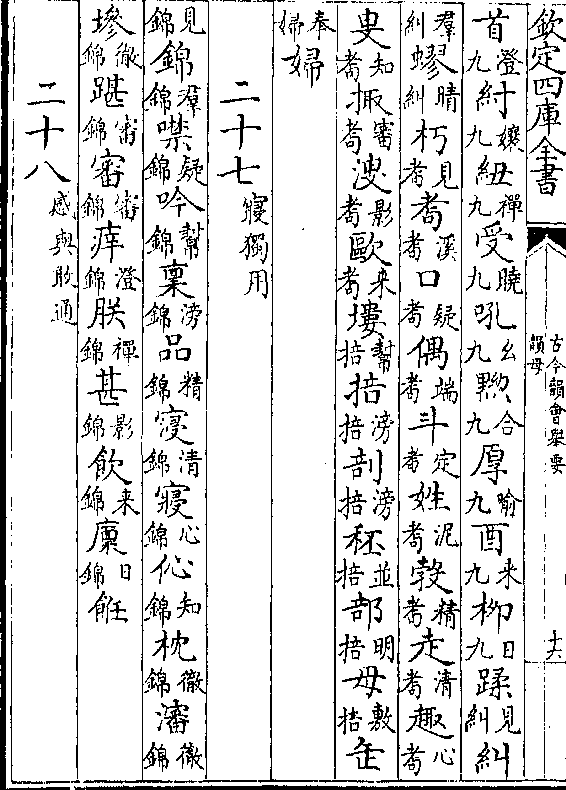 欽定四庫全書
古今韻會舉要韻母
十六
首澄九紂孃九紐禪九受曉九吼幺九黝合九厚喻九酉來九柳日九蹂見糾糾
羣糾蟉晴糾朽見耇耇溪耇口疑耇偶端耇斗定耇姓泥耇㝅精耇走清耇趣心耇
叟知耇掫審耇溲影耇歐來耇塿幫掊掊滂掊剖滂掊秠並掊部明掊母敷掊缶
奉婦婦
二十七寑獨用
見錦錦羣錦噤疑錦吟幫錦稟滂錦品精錦寖清錦寢心錦伈知錦枕徹錦瀋徹錦
墋徹錦踸審錦審審錦痒澄錦朕禪錦甚影錦飲來錦廩日錦飪
二十八感與敢通